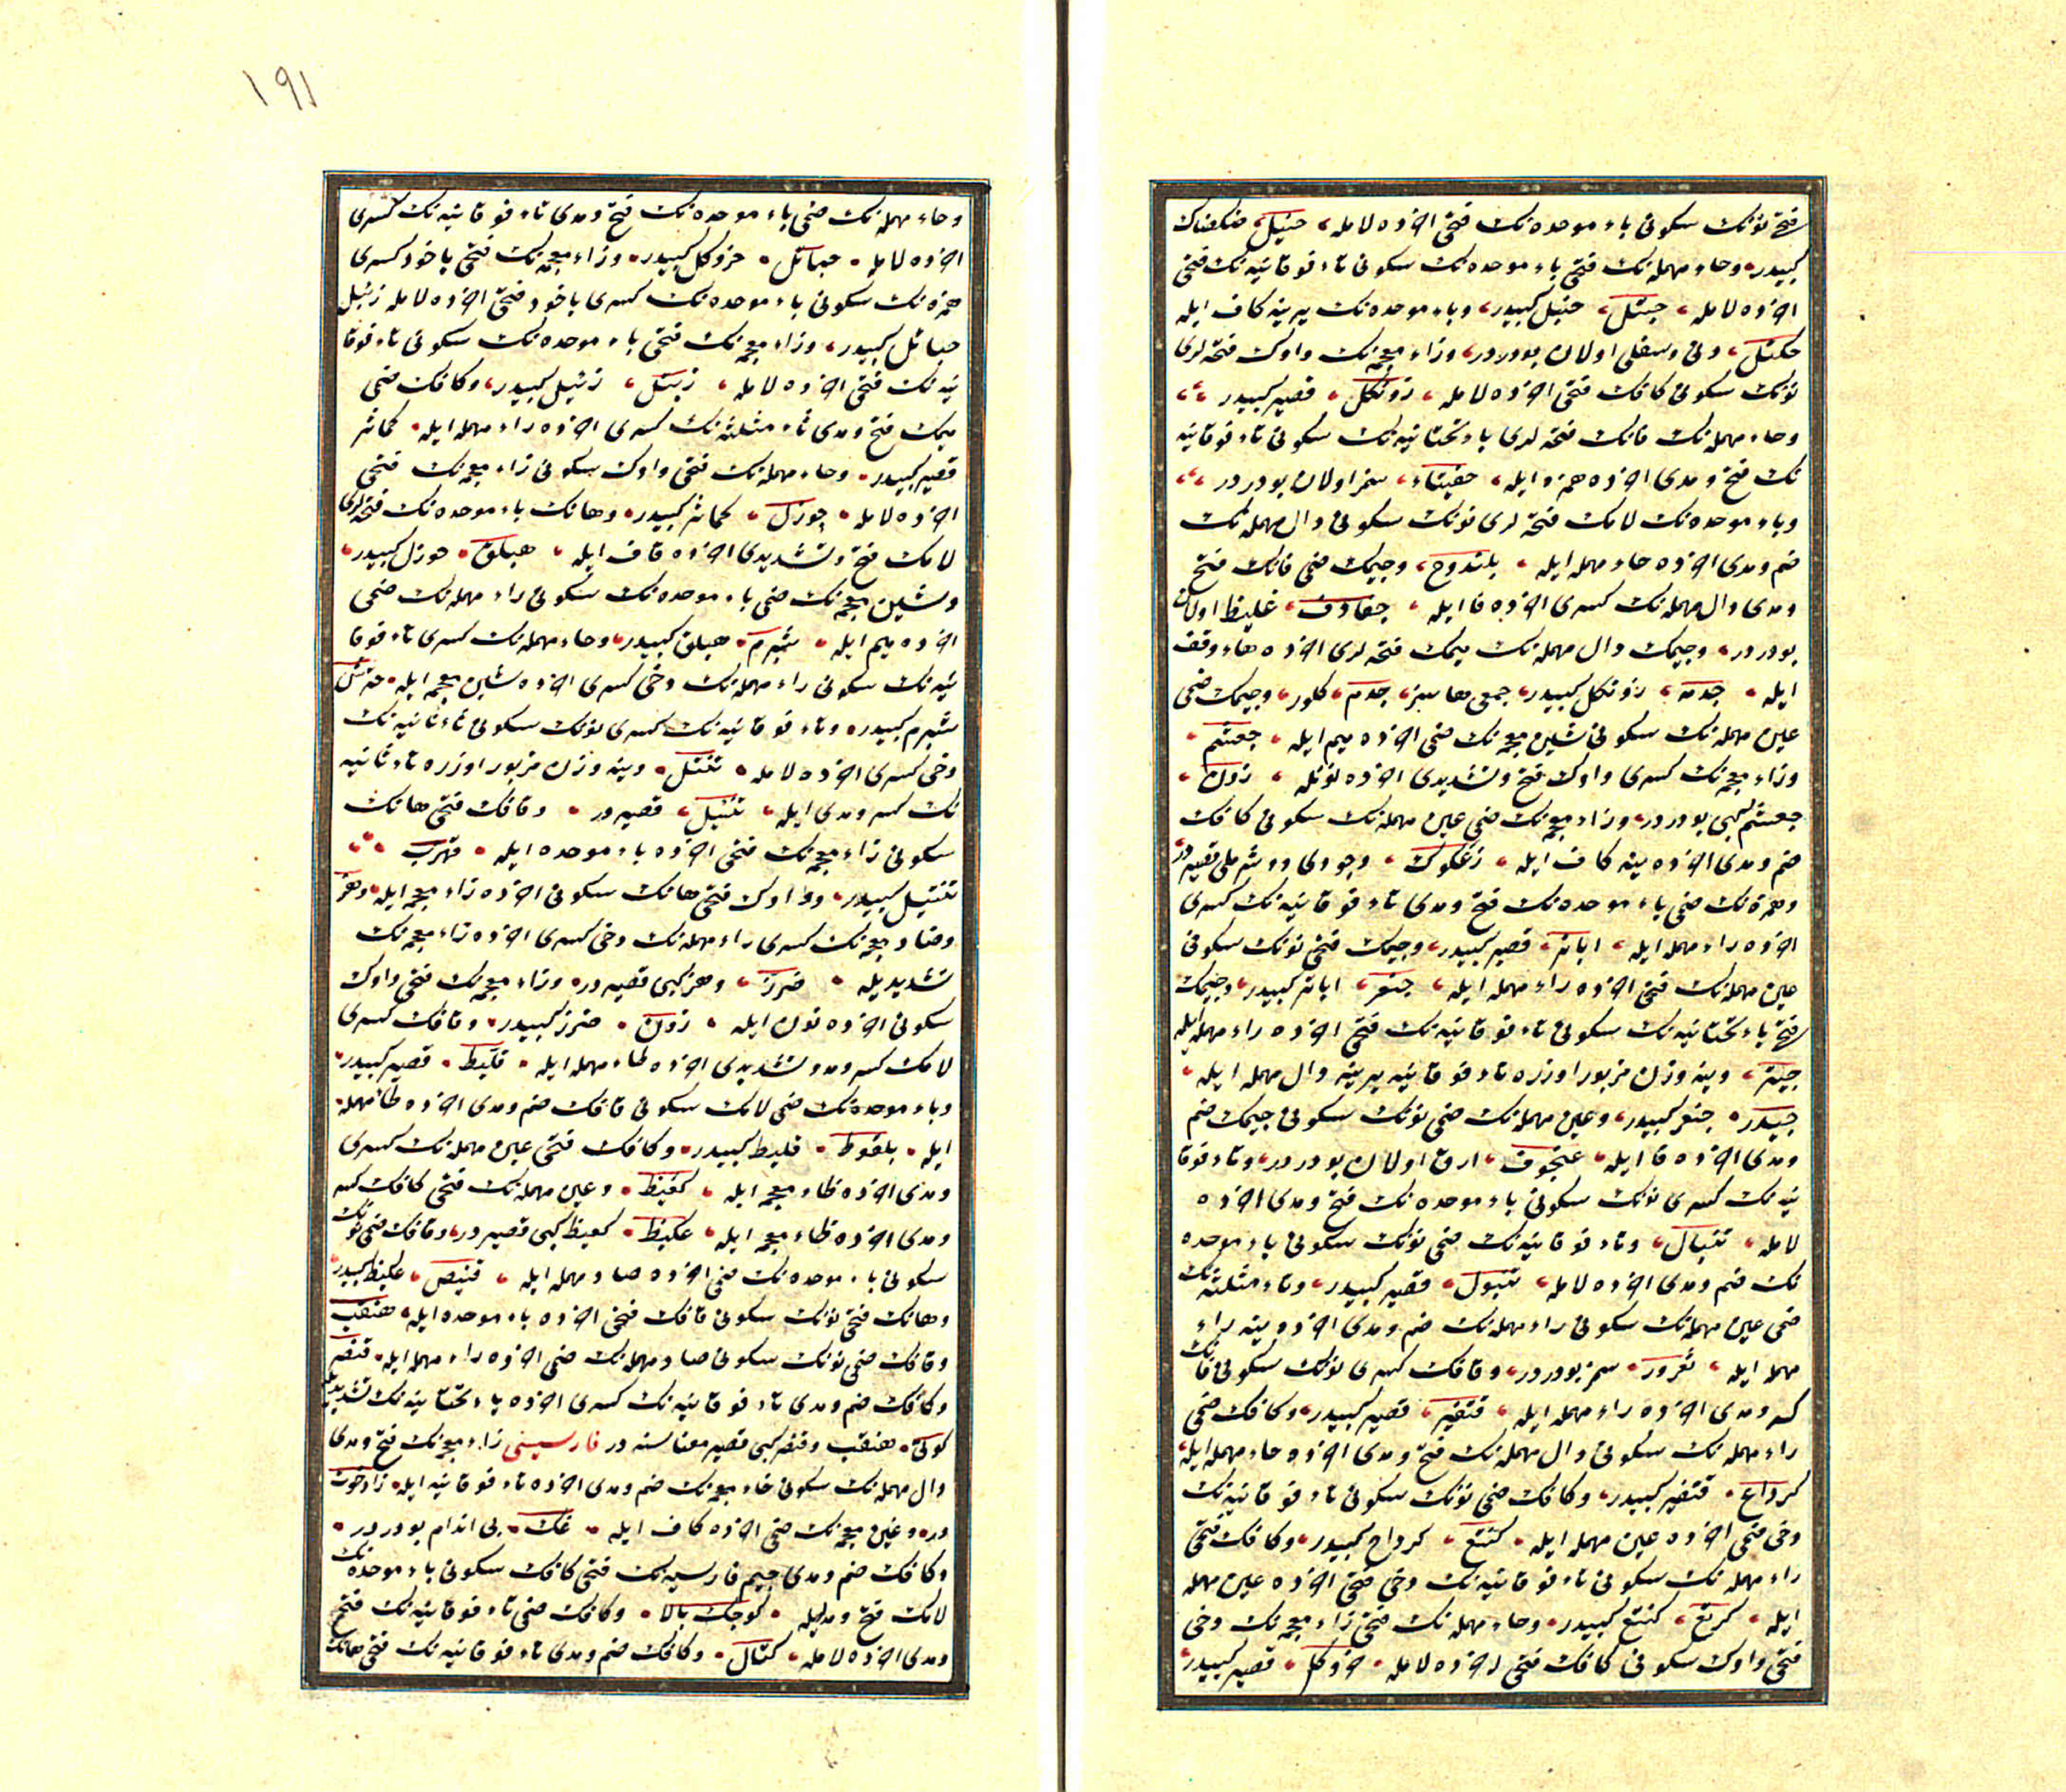 فتح نونك سكونى باء موحده نك فتحى اخرده لامله، حنبل، ضكضاك
كبيدر، وحاء مهمله نك فتحى باء موحده نك سكونى تاء فوقانيه نك فتحى
اخرده لامله، حبتل، حنبل كبيدر، وباء موحده نك يرينه كاف ايله
حكتل، دنى وسفلى اولان بودردر، وزاء معجمه نك واوك فتحه لرى
نونك سكونى كافك فتحى اخرده لامله، زونكل، قصير كبيدر
وحاء مهمله نك فانك فتحه لرى ياء تحتانيه نك سكونى تاء فوقانيه
نك فتح ومدى اخرده همزه ايله، حفيتاء، سمز اولان بودردر
وباء موحده نك لامك فتحه لرى نونك سكونى دال مهمله نك
ضم ومدى اخرده حاء مهمله ايله، بلندوح، وجيمك ضمى فانك فتح
ومدى دال مهمله نك كسرى اخرده فا ايله، جفادف، غليظ اولان
بودردر، وجيمك دال مهمله نك ميمك فتحه لرى اخرده هاء وقف
ايله، جدمه، زونكل كبيدر، جمعى هاسز، جدم، كلور، وجيمك ضمى
عين مهمله نك سكونى شين معجمه نك ضمى اخرده ميم ايله، جعشم
وزاء معجمه نك كسرى واوك فتح وتشديدى اخرده نونله، زون
جعشم كبى بودردر، وزاء معجمه نك ضمى عين مهمله نك سكونى كافك
ضم ومدى اخرده ينه كاف ايله، زعكوك، وجودى دوشرملى قصيردر
وهمزه نك ضمى باء موحده نك فتح ومدى تاء فوقانيه نك كسرى
اخرده راء مهمله ايله، اباتر، قصير كبيدر، وجيمك فتحى نونك سكونى
عين مهمله نك فتحى اخرده راء مهمله ايله، جنعر، اباتر كبيدر، وجيمك
فتح ياء تحتانيه نك سكونى تاء فوقانيه نك فتحى اخرده راء مهمله ايله
جيتر، وينه وزن مزبور اوزره تاء فوقانيه يرينه دال مهمله ايله
جيدر، جنعر كبيدر، وعين مهمله نك ضمى نونك سكونى جيمك ضم
ومدى اخرده فا ايله، عنجوف، ارق اولان بودردر، وتاء فوقا
نيه نك كسرى نونك سكونى باء موحده نك فتح ومدى اخرده
لامله، تنبال، وتاء فوقانيه نك ضمى نونك سكونى باء موحده
نك ضم ومدى اخرده لامله، تنبول، قصير كبيدر، وثاء مثلثه نك
ضمى عين مهمله نك سكونى راء مهمله نك ضم ومدى اخرده ينه راء
مهمله ايله، ثعرور، سمز بودردر، وقافك كسرى نونك سكونى فانك
كسر ومدى اخرده راء مهمله ايله، قنفير، قصير كبيدر، وكافك ضمى
راء مهمله نك سكونى دال مهمله نك فتح ومدى اخرده حاء مهمله ايله
كرداح، قنفير كبيدر، وكافك ضمى نونك سكونى تاء فوقانيه نك
دخى ضمى اخرده عين مهمله ايله، كنتع، كرداح كبيدر، وكافك فتحى
راء مهمله نك سكونى تاء فوقانيه نك دخى فتحى اخرده عين مهمله
ايله، كرتع، كنتع كبيدر، وحاء مهمله نك فتحى زاء معجمه نك دخى
فتحى واوك سكونى كافك فتحى اخرده لامله، حزوكل، قصير كبيدر
١٩١
وحاء مهمله نك ضمى باء موحده نك فتح ومدى تاء فوقانيه نك كسرى
اخرده لامله، حباتل، حزوكل كبيدر، وزاء معجمه نك فتحى ياخود كسرى
همزه نك سكونى باء موحده نك كسرى ياخود فتحى اخرده لامله زئبل
حباتل كبيدر، وزاء معجمه نك فتحى باء موحده نك سكونى تاء فوقا
نيه نك فتحى اخرده لامله، زبتل، زئبل كبيدر، وكافك ضمى
ميمك فتح ومدى ثاء مثلثه نك كسرى اخرده راء مهمله ايله، كماثر
قصير كبيدر، وحاء مهمله نك فتحى واوك سكونى زاء معجمه نك فتحى
اخرده لامله، حوزل، كماثر كبيدر، وهانك باء موحده نك فتحه لرى
لامك فتح وتشديدى اخرده قاف ايله، هبلق، حوزل كبيدر
وشين معجمه نك ضمى باء موحده نك سكونى راء مهمله نك ضمى
اخرده ميم ايله، شبرم، هبلق كبيدر، وحاء مهمله نك كسرى تاء فوقا
نيه نك سكونى راء مهمله نك دخى كسرى اخرده شين معجمه ايله، حترش
شبرم كبيدر، وتاء فوقانيه نك كسرى نونك سكونى تاء ثانيه نك
دخى كسرى اخرده لامله، تنتل، وينه وزن مزبور اوزره تاء ثانيه
نك كسر ومدى ايله، تنتيل، قصيردر، وقافك فتحى هانك
سكونى زاء معجمه نك فتحى اخرده باء موحده ايله، قهزب
تنتيل كبيدر، وواوك فتحى هانك سكونى اخرده زاء معجمه ايله، وهز
وضاد معجمه نك كسرى راء مهمله نك دخى كسرى اخرده زاء معجمه نك
تشديديله، ضرز، وهز كبى قصيردر، وزاء معجمه نك فتحى واوك
سكونى اخرده نون ايله، زون، ضرز كبيدر، وقافك كسرى
لامك كسر ومد وتشديدى اخرده طاء مهمله ايله، قليط، قصير كبيدر
وباء موحده نك ضمى لامك سكونى قافك ضم ومدى اخرده طاء مهمله
ايله، بلقوط، قليط كبيدر، وكافك فتحى عين مهمله نك كسرى
ومدى اخرده ظاء معجمه ايله، كعيظ، وعين مهمله نك فتحى كافك كسر
ومدى اخرده ظاء معجمه ايله، عكيظ، كعيظ كبى قصيردر، وقافك ضمى نونك
سكونى باء موحده نك ضمى اخرده صاد مهمله ايله، قنبص، عكيظ كبيدر
وهانك فتحى نونك سكونى قافك فتحى اخرده باء موحده ايله، هنقب
وقافك ضمى نونك سكونى صاد مهمله نك ضمى اخرده راء مهمله ايله، قنصر
وكافك ضم ومدى تاء فوقانيه نك كسرى اخرده ياء تحتانيه نك تشديديله
كوتى، هنقب وقنصر كبى قصير معناسنه در فارسيسى زاء معجمه نك فتح ومدى
دال مهمله نك سكونى خاء معجمه نك ضم ومدى اخرده تاء فوقانيه ايله، زادخوت
در، وغين معجمه نك ضمى اخرده كاف ايله، غك، بى اندام بودردر
وكافك ضم ومدى جيم فارسيه نك فتحى كافك سكونى باء موحده نك
لامك فتح ومديله، كوچك بالا، وكافك ضمى تاء فوقانيه نك فتح
ومدى اخرده لامله، كتال، وكافك ضم ومدى تاء فوقانيه نك فتحى هانك